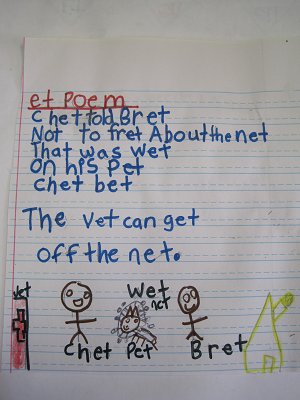 et Poem
Chet told Bret
Not to fret About the net
That was wet
On his Pet
Chet bet
The vet can get
off the net.
vet
Wet
net
Chet Pet Bret